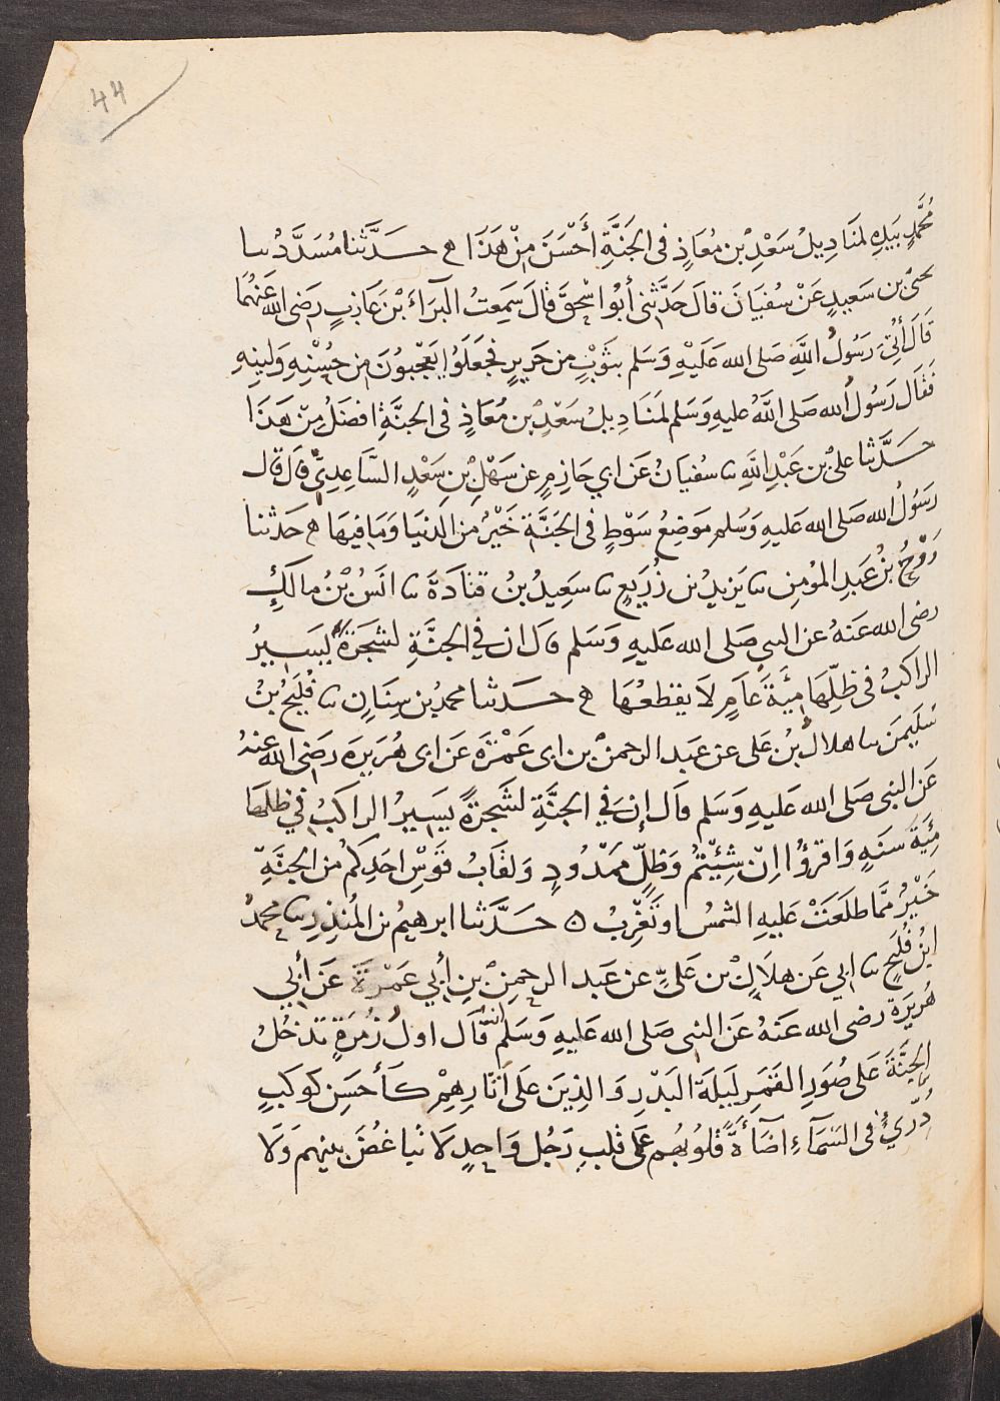 44
مُحَمَّدٍ بِيَدِهِ لَمَنَادِيلُ سَعْدِ بْنِ مُعَاذٍ فِى الجَنَّةِ أَحْسَنَ مِنْ هَذَا ه حَدَّثنا مُسَدَّدُ سا
يحيىٰ بن سَعِيدٍ عَنْ سُفيَانَ قالَ حَدَّثنى أبُوا سْحٰقَ قالَ سَمِعتُ البَرَاءَ بْنَ عَازِبٍ رَضى الله عَنهُمَا
قَالَ أُتِىَ رَسُولُ اللَّهِ صَلى الله عَلَيْهِ وَسَلم بثَوْبٍ من حَرِيرٍ فجَعَلَوُا يَعْجبُونَ مِن حُسْنِهِ وَلِينِهِ
فَقَال رَسُولُ الله صَلى اللَّهُ عليهِ وَسَلم لَمَنَادِيلُ سَعْدِ بْنِ مُعَاذٍ فى الجنَّةِ افضَلُ مِنْ هَذَا
حَدَّثنا علىُّ بْن عَبْدِ اللَّهِ سا سُفيَانُ عَنَ ابي حَازِمٍ عن سَهْلِ بْنِ سَعْدٍ السَّاعِدِيِّ قال قال
رسَوُلُ الله صَلى الله عَليهِ وَسَلم مَوَضِعُ سَوْطٍ فى الجَنَّةِ خَيْرُ من الدنيَا وَمَا فِيهَا ه حَدثنا
رَوْحُ بْنُ عَبدِ المؤمنِ سا يَزيدُ بن زُرَيعٍ سا سَعِيدُ بنُ قتادَةَ سا انَسُ بْنُ مالكٍ
رضى الله عَنهُ عن النبى صَلى الله عَليهِ وَسَلم قال ان في الجنَّةِ لشجَرَةً يَسِيرُ
الراكبُ فى ظلِّهَا مِئَةَ عَامٍ لاَ يقطعُهَا ه حَدثنا محمدُ بن سِنَانِ سا فُلَيحُ بْنُ
سُلَيمٰنَ سا هلالُ بْنُ عَلى عن عَبد الرحمنْ بن ابى عَمْرَةَ عَن ابى هُرَيرَةَ رضَى الله عنهُ
عَن النبى صَلى الله عَليهِ وَسَلم قال إن في الجنَّةِ لشجَرَةً يَسِيرُ الراكبُ في ظلهَا
مِئَةَ سَنهٍ وَاقرؤُا اِنْ شِئْتُمْ وَظِلٍّ مَمْدُودٍ وَلقَابُ قَوْسِ احَدِكمُ من الجنَّةِ
خَيْرٌ مَّمَّا طلَعَتْ عَليهِ الشمسُ او تَغْرِبُ ه حَدَّثنا ابرهيمُ بن المُنذِرِ سا محمدُ
ابنُ فُلَيَحٍ سا ابي عَن هلاَلِ بْن عَلىٍّ عن عَبد الرحمنْ بنِ أبي عَمْرَةَ عَن أبي
هُرَيرَة رضى الله عَنهُ عَن النبى صَلى الله عَليهِ وَسَلم انهُ قال اولُ زُمرَةٍ تدَخُلُ
الجنَّةَ عَلى صُوَرِ القمَرِ لَيلَةَ البَدْرِ وَالذِينَ عَلى اَثارِهِمْ كَأحسَنِ كوكبٍ
دُرّيٍّ فى السَّمَآءِ اضَآءَةً قُلُوبُهُم عَلى قلبِ رَجُل وَاحِدٍ لَا تباغُضَ بينهمَ وَلَا